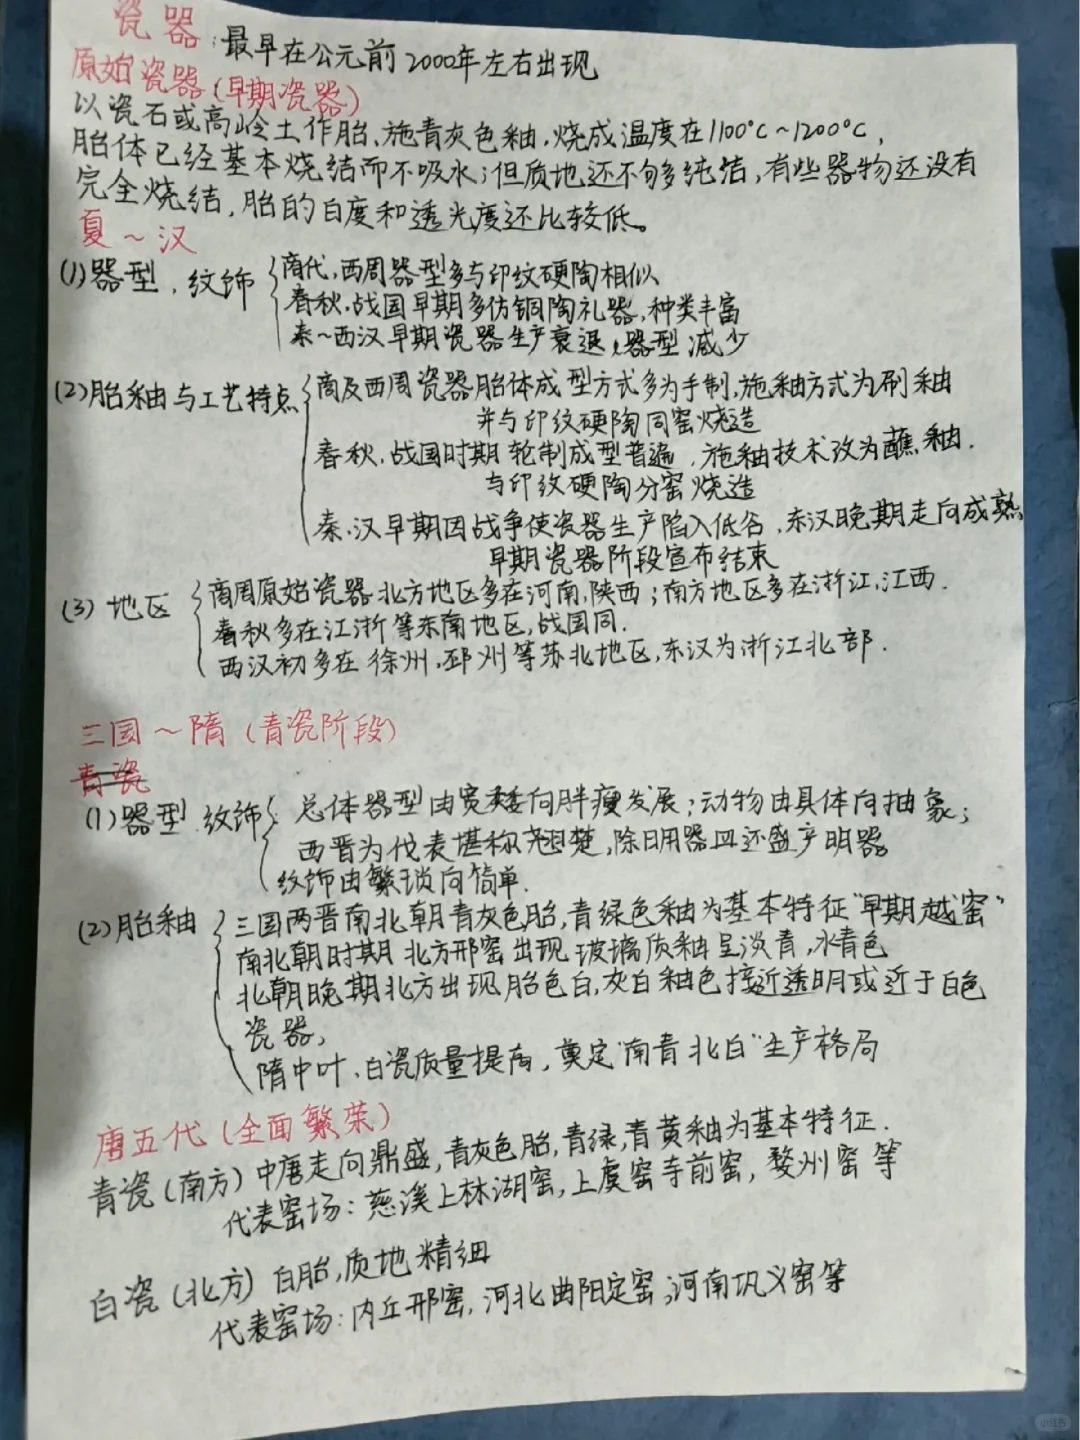 瓷器：最早在公元前2000年左右出现
原始瓷器(早期瓷器)
以瓷石或高岭土作胎、施青灰色釉，烧成温度在1100°C~1200°C，
胎体已经基本烧结而不吸水；但质地还不够多纯洁，有些器物还没有
完全烧结，胎的白度和透光度还比较低。
夏~汉
(1)器型、纹饰
商代，西周器型多与印纹硬陶相似
春秋、战国早期多仿铜陶礼器，种类丰富
秦~西汉早期瓷器生产衰退，器型减少
(2)胎釉与工艺特点
商及西周瓷器胎体成型方式多为手制，施釉方式为刷釉
并与印纹硬陶同窑烧造
春秋、战国时期轮制成型普遍，施釉技术改为蘸釉．
与印纹硬陶分窑烧造
秦、汉早期因战争使瓷器生产陷入低谷，东汉晚期走向成熟，
早期瓷器阶段宣布结束
(3)地区
商周原始瓷器北方地区多在河南，陕西；南方地区多在浙江，江西．
春秋多在江浙等东南地区，战国同．
西汉初多在徐州、邳州等苏北地区，东汉为浙江北部．
三国~隋(青瓷阶段)
青瓷
(1)器型纹饰
总体器型由宽矮向胖瘦发展；动物由具体向抽象；
西晋为代表堪称翘楚，除日用器皿还盛产明器
纹饰由繁琐向简单．
(2)胎釉
三国两晋南北朝青灰色胎，青绿色釉为基本特征"早期越窑"
南北朝时期北方邢窑出现玻璃质釉呈淡青，水青色
北朝晚期北方出现胎色白，灰白釉色接近透明或近于白色
瓷器，
隋中叶、白瓷质量提高，奠定"南青北白"生产格局
唐五代(全面繁荣)
青瓷(南方)中唐走向鼎盛，青灰色胎，青绿，青黄釉为基本特征．
代表窑场：慈溪上林湖窑，上虞窑寺前窑，婺州窑等
白瓷(北方)白胎，质地精细
代表窑场：内丘邢窑，河北曲阳定窑；河南巩义窑等
小红书